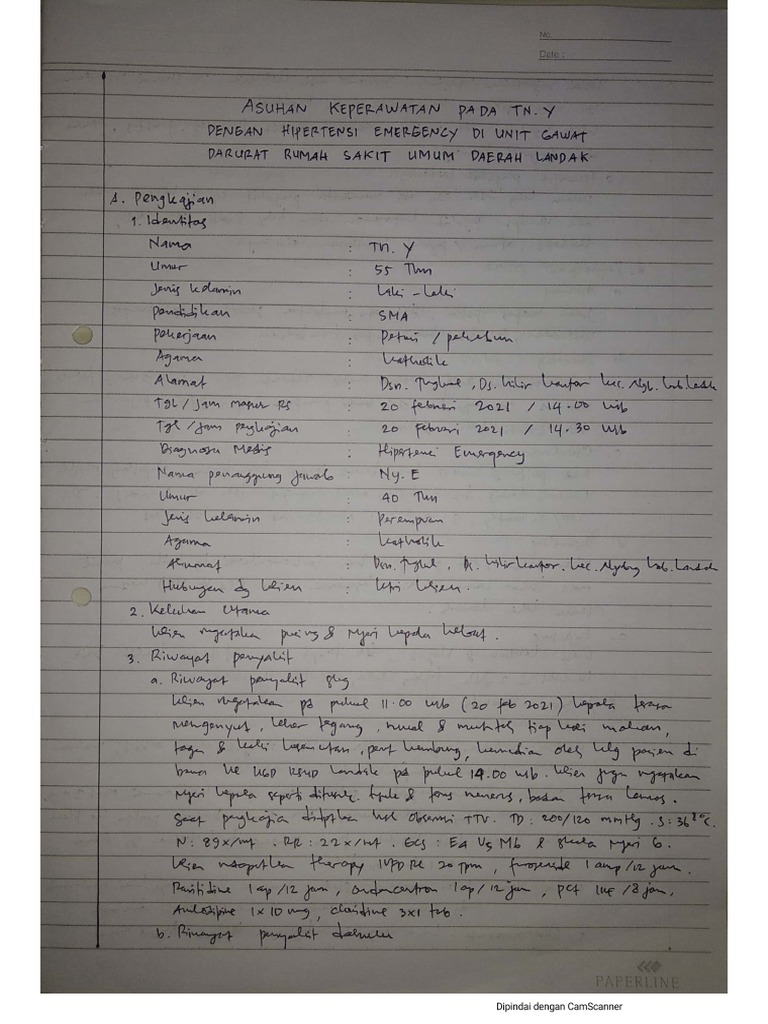 No.
Date :
ASUHAN KEPERAWATAN PADA TN. Y
DENGAN HIPERTENSI EMERGENCY DI UNIT GAWAT
DARURAT RUMAH SAKIT UMUM DAERAH LANDAK
A. Pengkajian
1. Identitas
Nama : Tn. Y
Umur : 55 Thn
Jenis kelamin : Laki-laki
Pendidikan : SMA
Pekerjaan : Petani / pekebun
Agama : Katholik
Alamat : Dsn. Tungkul, Ds. hilir kantor kec. Ngb. kab. Landak
Tgl / Jam masuk RS : 20 februari 2021 / 14.00 wib
Tgl / Jam pengkajian : 20 februari 2021 / 14.30 wib
Diagnosa Medis : Hipertensi Emergency
Nama penanggung jawab : Ny. E
Umur : 40 Thn
Jenis kelamin : Perempuan
Agama : Katholik
Alamat : Dsn. Tungkul, Ds. hilir kantor. kec. Ngabang kab. Landak
Hubungan dg klien : Istri klien.
2. Keluhan Utama
klien mengatakan pusing & Nyeri kepala hebat.
3. Riwayat penyakit
a. Riwayat penyakit skg
klien mengatakan pd pukul 11.00 wib (20 feb 2021) kepala terasa
mengenyut, leher tegang, mual & muntah tiap kali makan,
tangan & kaki kesemutan, perut kembung, kemudian oleh klg pasien di
bawa ke UGD RSUD Landak pd pukul 14.00 wib. klien juga mengatakan
Nyeri kepala seperti ditusuk-tusuk & terus menerus, badan terasa lemas.
Saat pengkajian didptkan hsl observasi TTV. TD : 200/120 mmHg. S : 36,8°C.
N : 89x/mt. RR : 22x/mt. GCS : E4 V5 M6 & skala Nyeri 6.
klien mdapatkan therapy IVFD RL 20 tpm, furosemide 1 amp/12 jam.
Ranitidine 1 ap/12 jam, ondancentron 1 ap/12 jam, PCT /8 jam,
Amlodipine 1x10 mg, clonidine 3x1 tab.
b. Riwayat penyakit dahulu
PAPERLINE
Dipindai dengan CamScanner